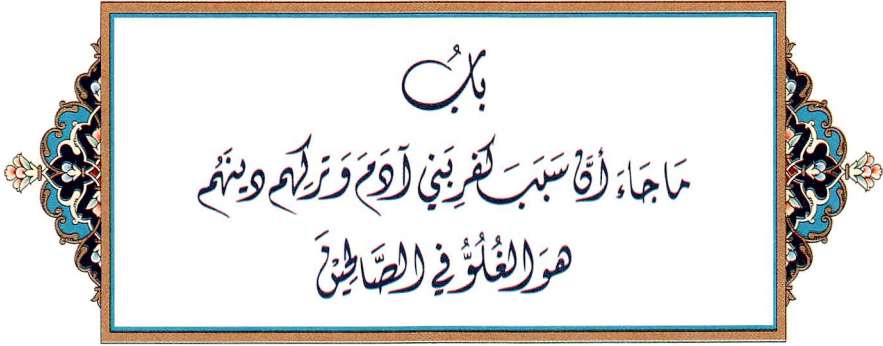 بَابُ
مَا جَاءَ أَنَّ سَبَبَ كُفرِ بَنِي آدَمَ وَتَركِهِم دِينَهُم
هوَ الغُلُوُّ فِي الصَّالِحِيْنَ